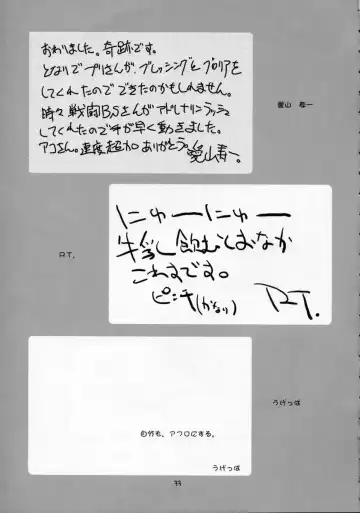 おわりました。奇跡です。
となりでプリさんが、ブレッシングとグロリアを
してくれたのでできたのかもしれません。
時々戦闘BSさんがアドレナリンラッシュ
してくれたので手が早く動きました。
アコさん。速度超加ありがとう。
R.T.
にゅーにゅー
牛乳飲むとおなか
こわすです。
ピンチ(かなり) R.T.
うげっぱ
自作も、アフロにする。
うげっぱ
33